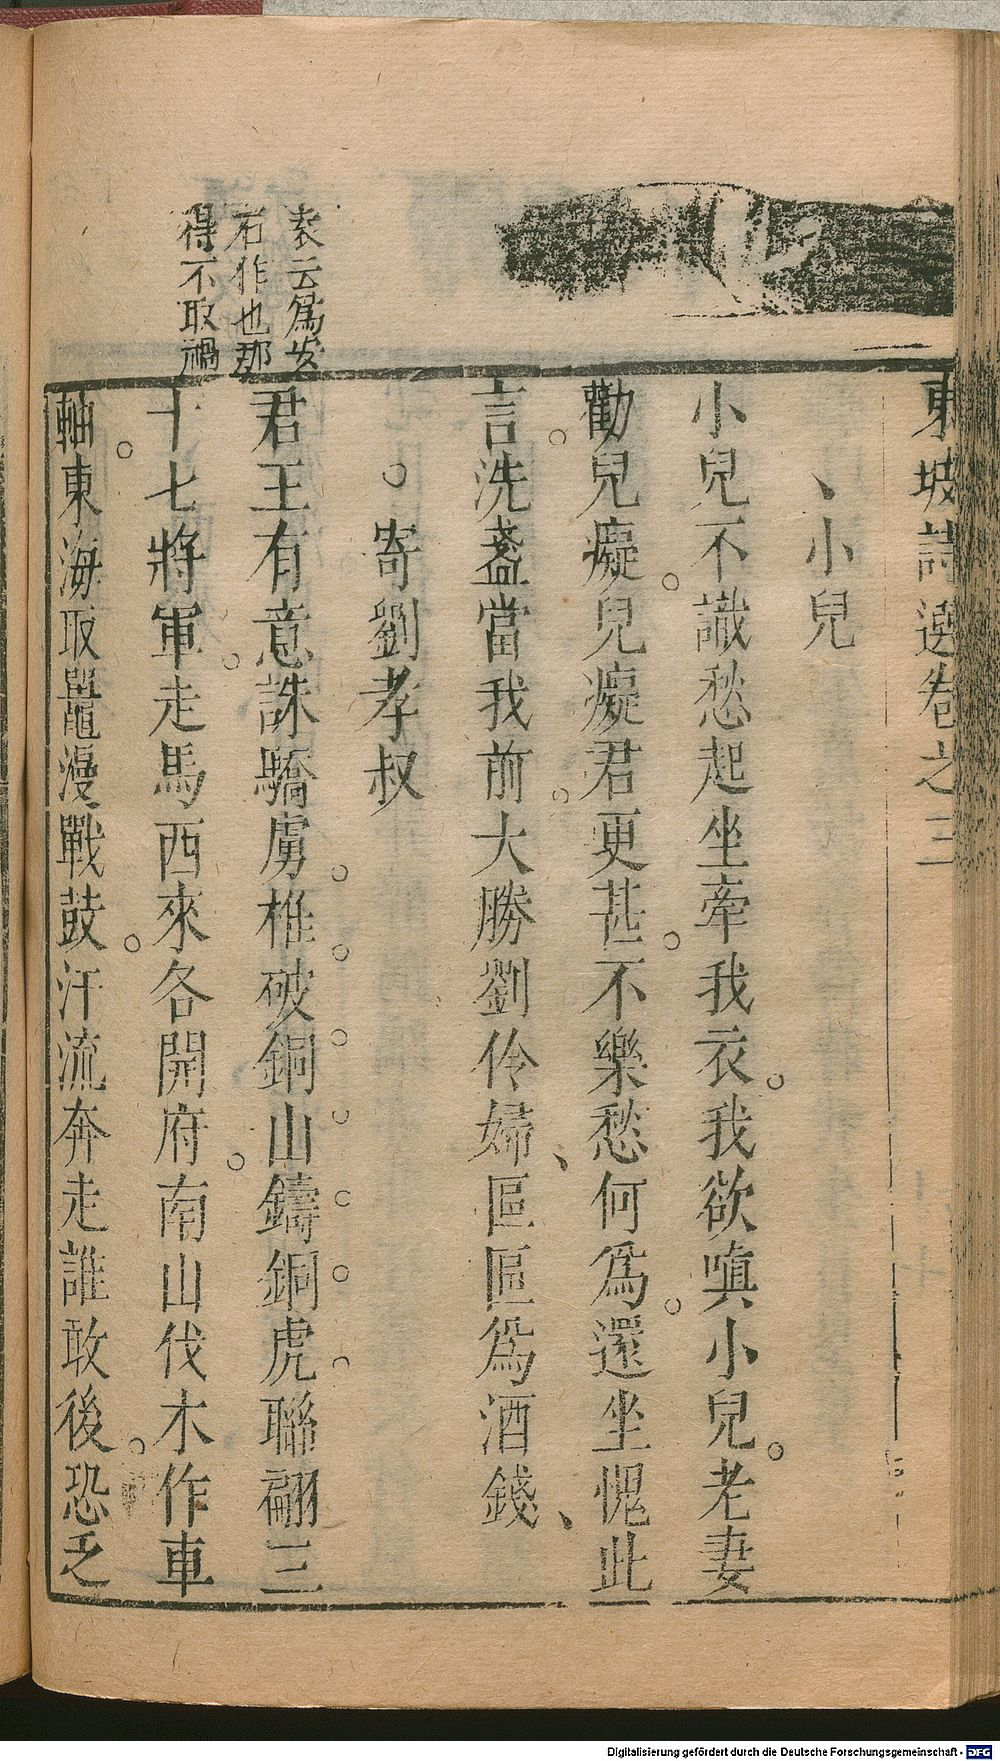 東坡詩選卷之三
小兒
小兒不識愁起坐牽我衣我欲嗔小兒老妻
勸兒癡兒癡君更甚不樂愁何爲還坐愧此
言洗盞當我前大勝劉伶婦區區爲酒錢
寄劉孝叔
君王有意誅驕虜椎破銅山鑄銅虎聯翩三
十七將軍走馬西來各開府南山伐木作車
軸東海取鼉漫戰鼓汗流奔走誰敢後恐乏
袁云爲安
石作也那
得不取禍
Digitalisierung gefördert durch die Deutsche Forschungsgemeinschaft - DFG